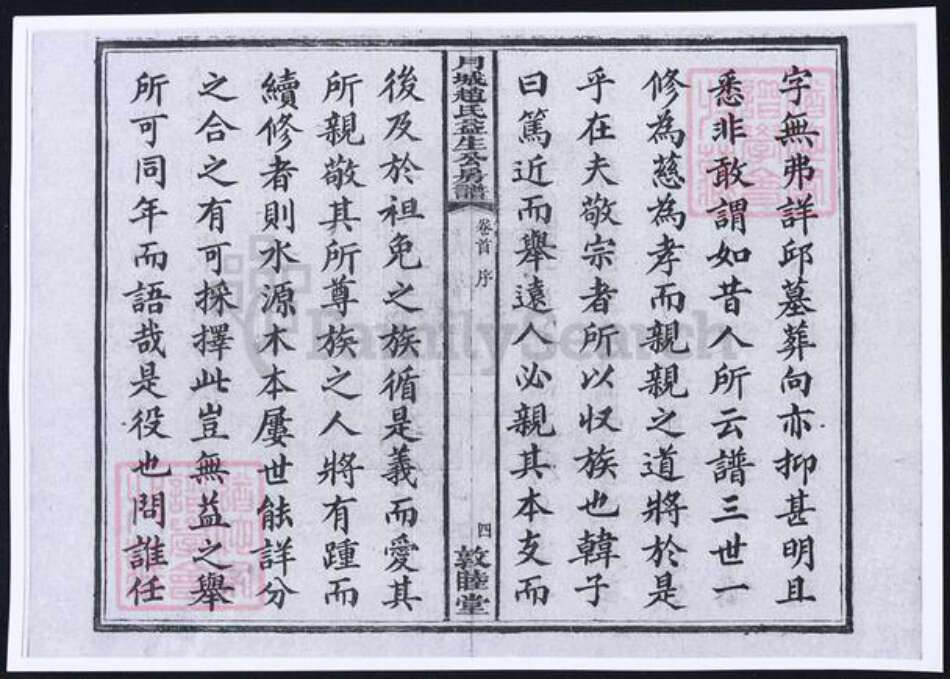 字無弗詳邱墓葬向亦抑甚明且
悉非敢謂如昔人所云譜三世一
修為慈為孝而親親之道將於是
乎在夫敬宗者所以収族也韓子
曰篤近而舉遠人必親其本支而
月城趙氏益生公房譜
卷首 序
四
敦睦堂
後及於祖免之族循是義而愛其
所親敬其所尊族之人將有踵而
續修者則水源木本屢世能詳分
之合之有可採擇此豈無益之舉
所可同年而語哉是役也問誰任
FamilySearch